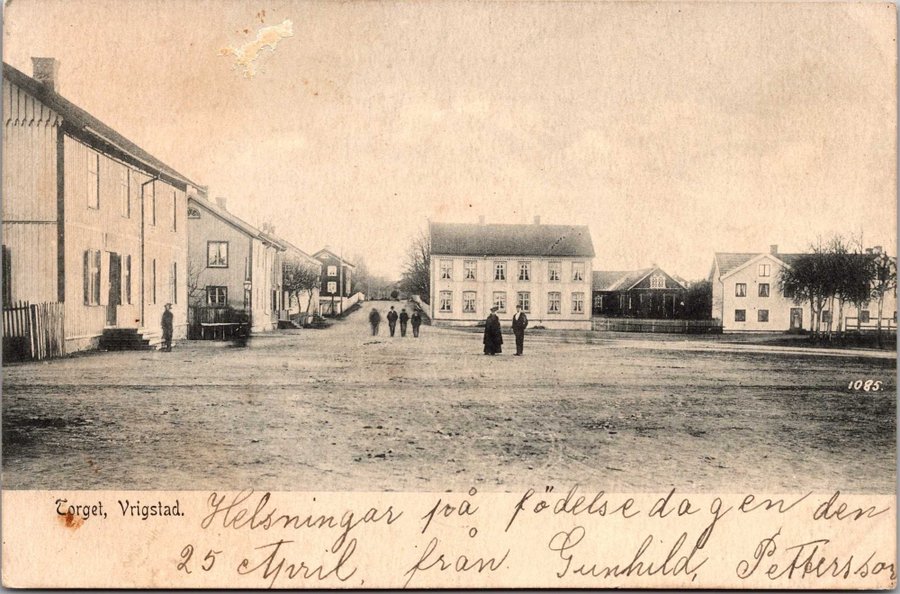 1085.
Torget, Vrigstad.
Helsningar på födelsedagen den
25 April, från Gunhild, Pettersson